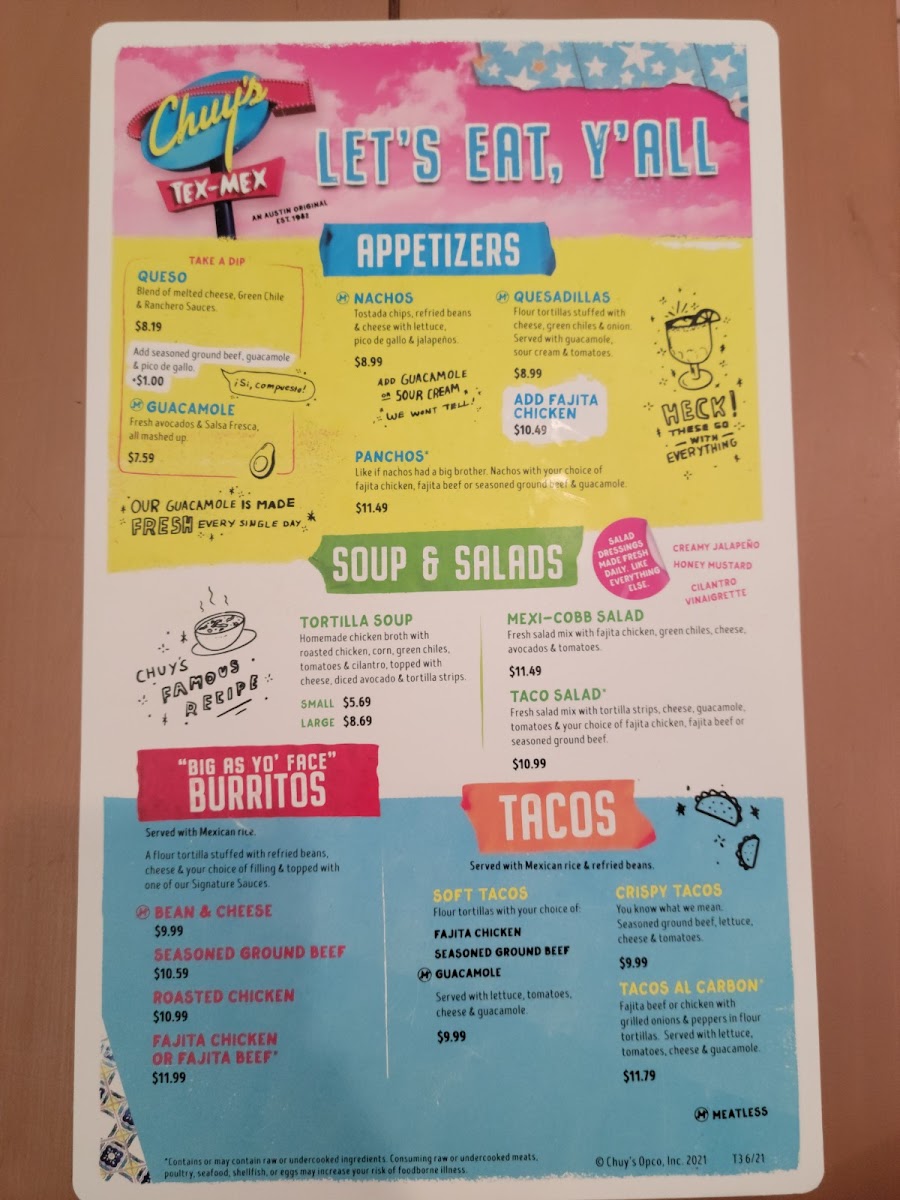 Chuy's
TEX-MEX
AN AUSTIN ORIGINAL
EST. 1982
LET'S EAT, Y'ALL
APPETIZERS
TAKE A DIP
QUESO
Blend of melted cheese, Green Chile
& Ranchero Sauces.
$8.19
Add seasoned ground beef, guacamole
& pico de gallo.
+$1.00
¡Si, compuesto!
M GUACAMOLE
Fresh avocados & Salsa Fresca,
all mashed up.
$7.59
OUR GUACAMOLE IS MADE
FRESH EVERY SINGLE DAY
M NACHOS
Tostada chips, refried beans
& cheese with lettuce,
pico de gallo & jalapeños.
$8.99
ADD GUACAMOLE
OR SOUR CREAM
WE WONT TELL!
M QUESADILLAS
Flour tortillas stuffed with
cheese, green chiles & onion.
Served with guacamole,
sour cream & tomatoes.
$8.99
ADD FAJITA
CHICKEN
$10.49
HECK!
THESE GO
WITH
EVERYTHING
PANCHOS*
Like if nachos had a big brother. Nachos with your choice of
fajita chicken, fajita beef or seasoned ground beef & guacamole.
$11.49
SOUP & SALADS
SALAD
DRESSINGS
MADE FRESH
DAILY. LIKE
EVERYTHING
ELSE.
CREAMY JALAPEÑO
HONEY MUSTARD
CILANTRO
VINAIGRETTE
CHUY'S
FAMOUS
RECIPE
TORTILLA SOUP
Homemade chicken broth with
roasted chicken, corn, green chiles,
tomatoes & cilantro, topped with
cheese, diced avocado & tortilla strips.
SMALL $5.69
LARGE $8.69
MEXI-COBB SALAD
Fresh salad mix with fajita chicken, green chiles, cheese,
avocados & tomatoes.
$11.49
TACO SALAD*
Fresh salad mix with tortilla strips, cheese, guacamole,
tomatoes & your choice of fajita chicken, fajita beef or
seasoned ground beef.
$10.99
"BIG AS YO' FACE"
BURRITOS
Served with Mexican rice.
A flour tortilla stuffed with refried beans,
cheese & your choice of filling & topped with
one of our Signature Sauces.
M BEAN & CHEESE
$9.99
SEASONED GROUND BEEF
$10.59
ROASTED CHICKEN
$10.99
FAJITA CHICKEN
OR FAJITA BEEF*
$11.99
TACOS
Served with Mexican rice & refried beans.
SOFT TACOS
Flour tortillas with your choice of:
FAJITA CHICKEN
SEASONED GROUND BEEF
M GUACAMOLE
Served with lettuce, tomatoes,
cheese & guacamole.
$9.99
CRISPY TACOS
You know what we mean.
Seasoned ground beef, lettuce,
cheese & tomatoes.
$9.99
TACOS AL CARBON*
Fajita beef or chicken with
grilled onions & peppers in flour
tortillas. Served with lettuce,
tomatoes, cheese & guacamole.
$11.79
M MEATLESS
*Contains or may contain raw or undercooked ingredients. Consuming raw or undercooked meats,
poultry, seafood, shellfish, or eggs may increase your risk of foodborne illness.
© Chuy's Opco, Inc. 2021 T3 6/21